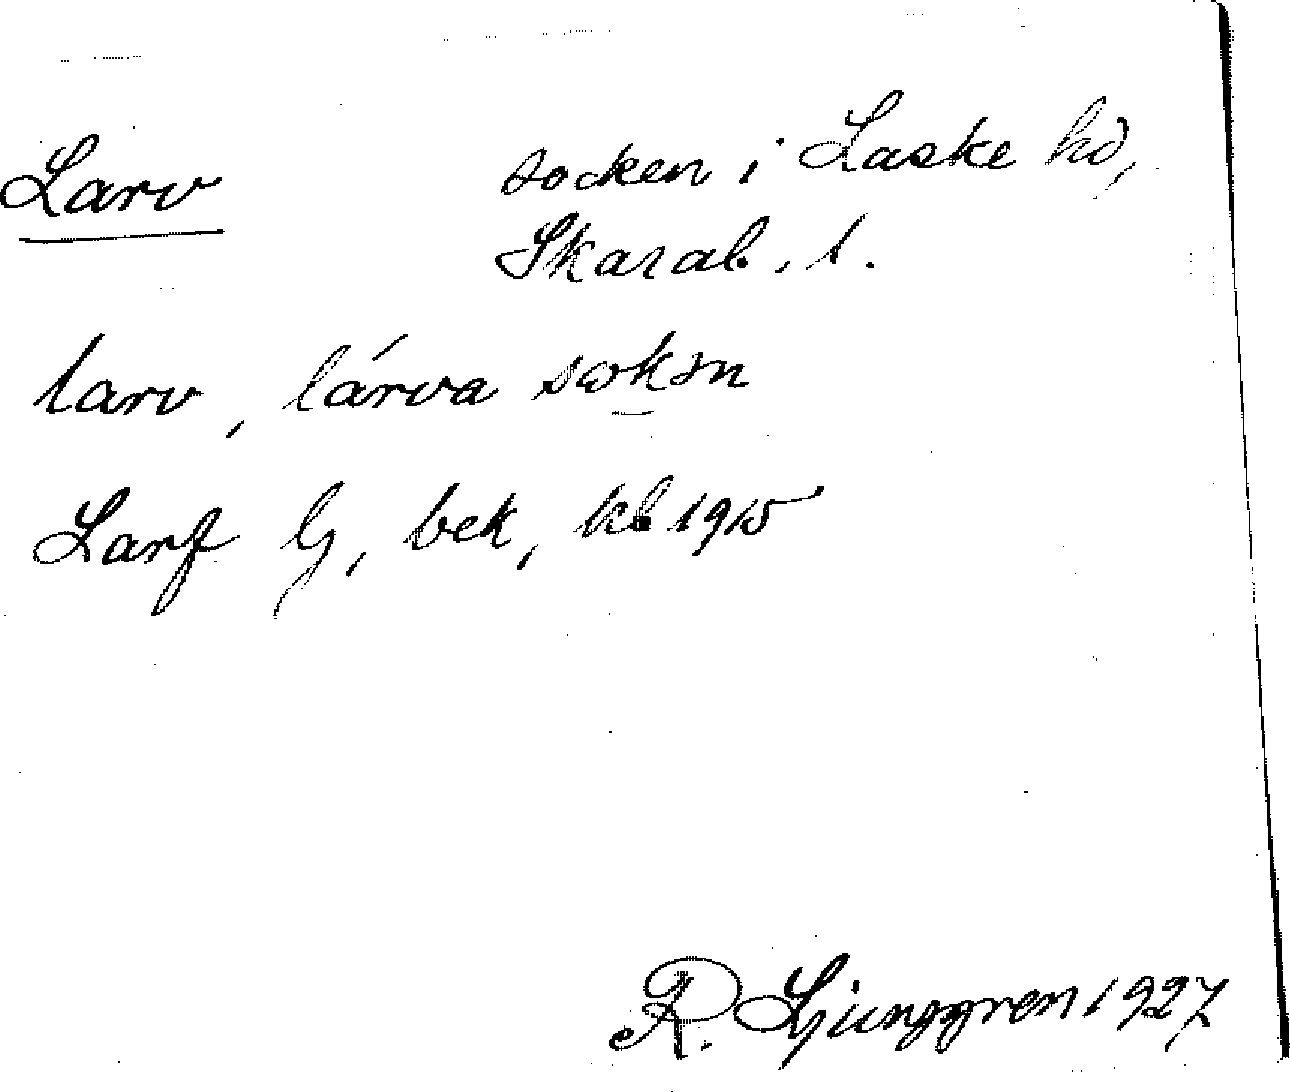 Larv socken i Laske hd,
Skarab. l.
larv, lárva sωkən
Larf G, bek, kb 1915
R. Ljunggren 1927